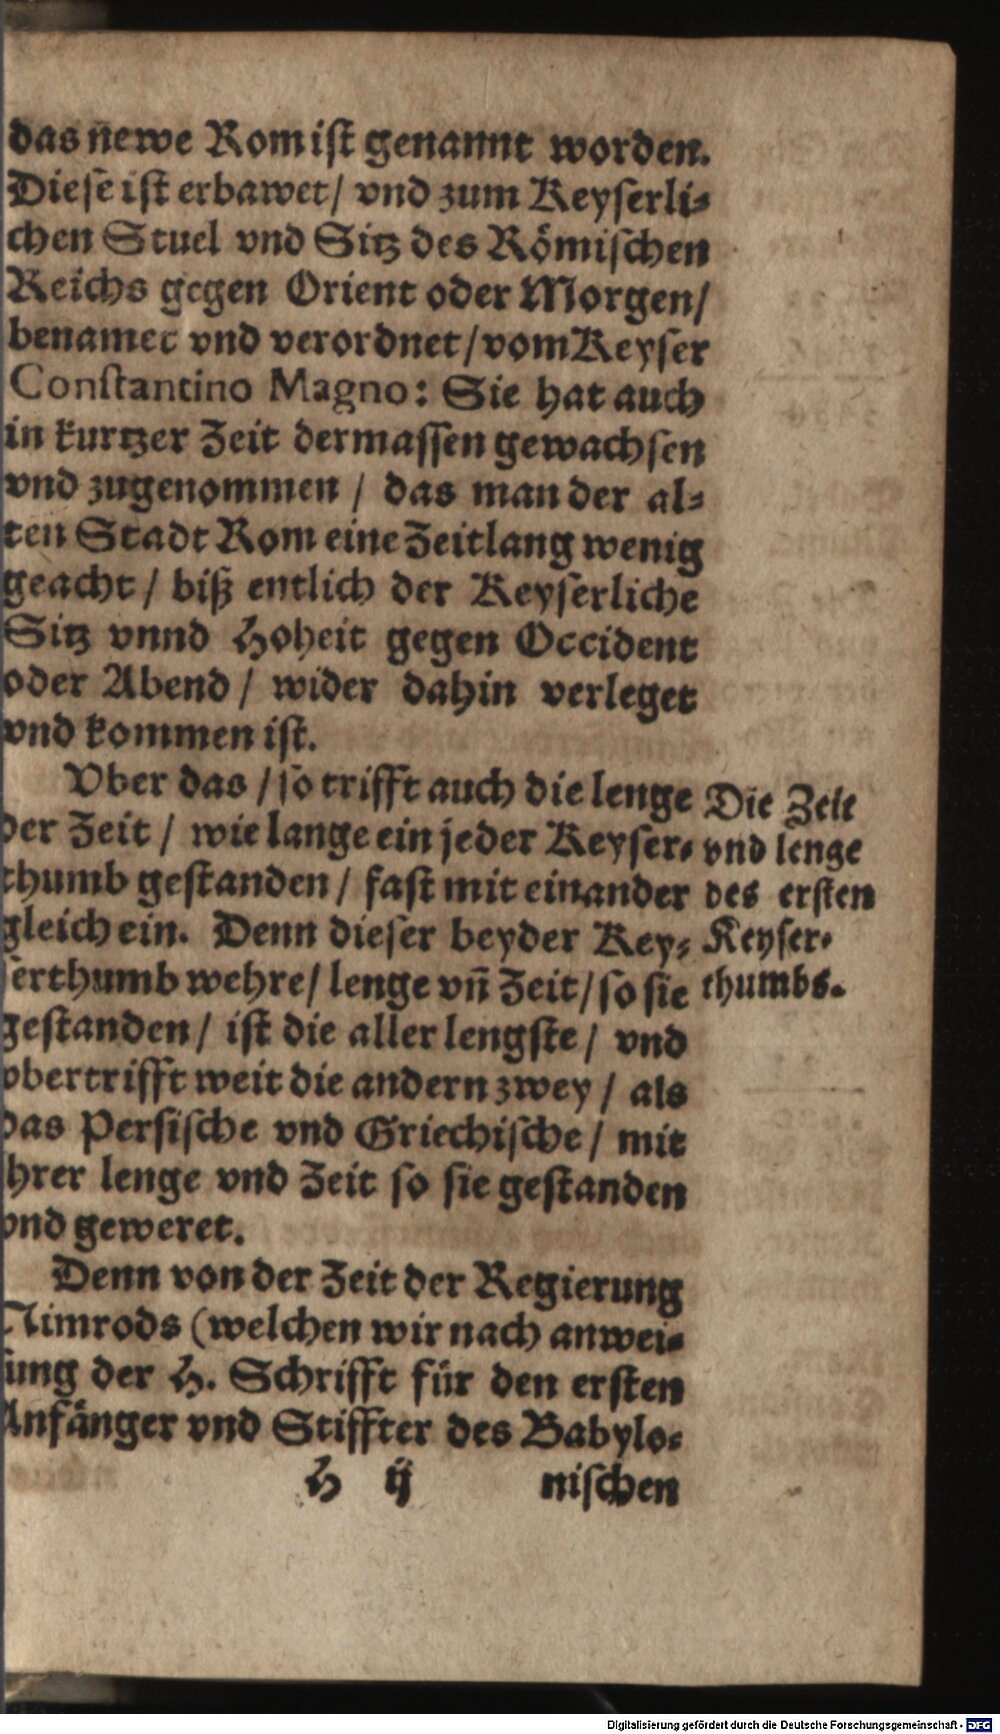 das newe Rom ist genannt worden.
Diese ist erbawet/ vnd zum Keyserli-
chen Stuel vnd Sitz des Römischen
Reichs gegen Orient oder Morgen/
benamet vnd verordnet/ vom Keyser
Constantino Magno: Sie hat auch
in kurtzer Zeit dermassen gewachsen
vnd zugenommen/ das man der al-
ten Stadt Rom eine Zeitlang wenig
geacht/ biß entlich der Keyserliche
Sitz vnnd Hoheit gegen Occident
oder Abend/ wider dahin verleget
vnd kommen ist.
Vber das/ so trifft auch die lenge
der Zeit/ wie lange ein jeder Keyser-
thumb gestanden/ fast mit einander
gleich ein. Denn dieser beyder Key-
serthumb wehre/ lenge vñ Zeit/ so sie
gestanden/ ist die aller lengste/ vnd
vbertrifft weit die andern zwey/ als
das Persische vnd Griechische/ mit
hrer lenge vnd Zeit so sie gestanden
vnd geweret.
Denn von der Zeit der Regierung
Nimrods (welchen wir nach anwei-
sung der H. Schrifft für den ersten
Anfänger vnd Stiffter des Babylo-
H ij nischen
Die Zeit
vnd lenge
des ersten
Keyser-
thumbs.
Digitalisierung gefördert durch die Deutsche Forschungsgemeinschaft - DFG